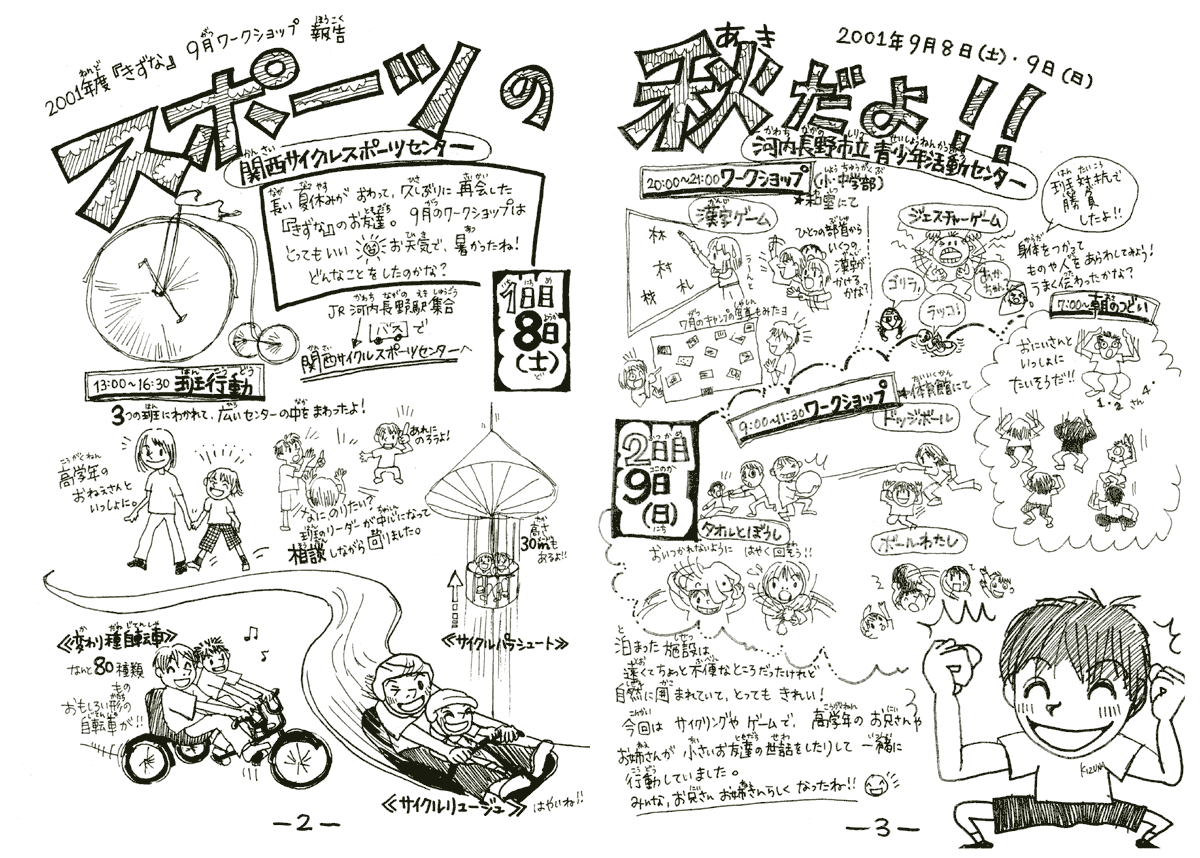 2001年度『きずな』 9月ワークショップ 報告
スポーツの
関西サイクルスポーツセンター
長い 夏休みが おわって、久しぶりに 再会した
『きずな』のお友達。 9月のワークショップは
とってもいい お天気で、暑かったね！
どんなことをしたのかな？
1日目
8日
(土)
JR 河内長野駅集合
バスで
関西サイクルスポーツセンターへ
13:00〜16:30 班行動
3つの班にわかれて、広いセンターの中をまわったよ！
高学年の
おねえさんと
いっしょに。
あれに
のろうよ！
なにのりたい？
班のリーダーが中心になって
相談しながら回りました。
高さ
30mも
あるよ!!
≪サイクルパラシュート≫
≪変わり種自転車≫
なんと80種類もの
おもしろい形の
自転車が!!
≪サイクルリュージュ≫
はやいね!!
－2－
秋だよ!!
2001年9月8日(土)・9日(日)
河内長野市立 青少年活動センター
20:00〜21:00 ワークショップ
(小・中学部)
*和室にて
漢字ゲーム
林
村
枚 札
うーんと
ひとつの部首から
いくつの
漢字が
かける
かな？
7月のキャンプの写真もみたヨ
ジェスチャーゲーム
ゴリラ！
ラッコ！
班対抗で
勝負
したよ!!
身体をつかって
ものや人をあらわしてみよう！
うまく伝わったかな？
7:00〜朝のつどい
おにいさんと
いっしょに
たいそうだ!!
1・2 さん 4・
2日目
9日
(日)
9:00〜11:30 ワークショップ
*体育館にて
ドッジボール
タオルとぼうし
おいつかれないように はやく回そう!!
ボールわたし
泊まった施設は
遠くてちょっと不便なところだったけれど
自然に囲まれていて、とっても きれい！
今回は サイクリングや ゲームで、高学年の お兄さんや
お姉さんが 小さいお友達の世話をしたりして 一緒に
行動していました。
みんな、お兄さん お姉さんらしく なったね!!
KIZUNA
－3－